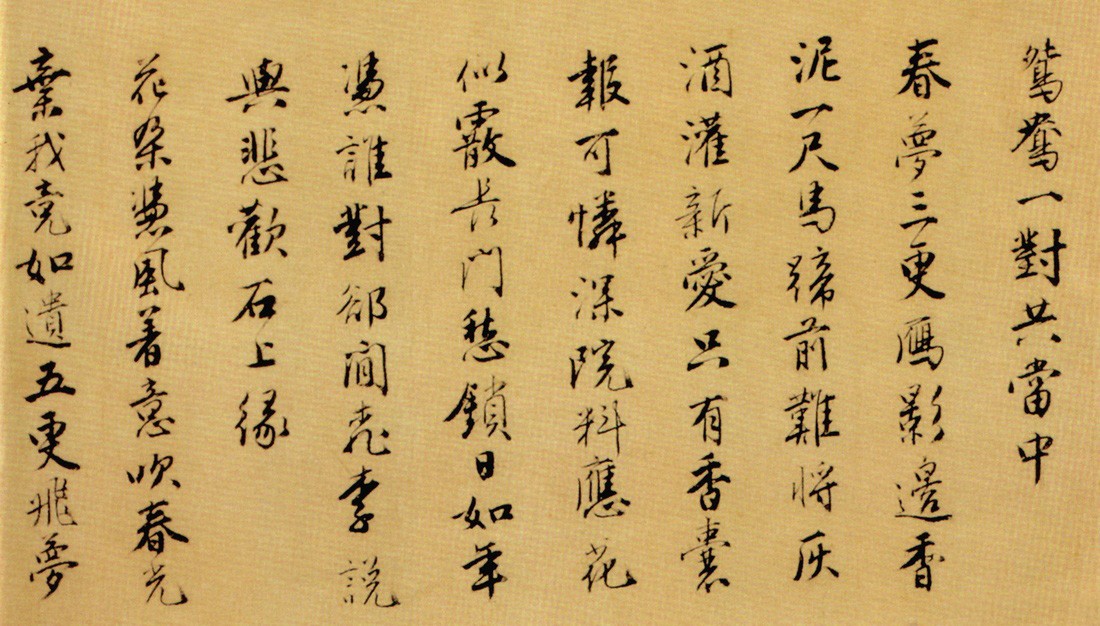 鴛鴦一對共當中
春夢三更鴈影邊香
泥一尺馬蹄前難將灰
酒灌新愛只有香囊
報可憐深院料應花
似霰長門愁鎖日如年
憑誰對卻閒桃李說
與悲歡石上緣
花朶憑風着意吹春光
棄我竟如遺五更飛夢